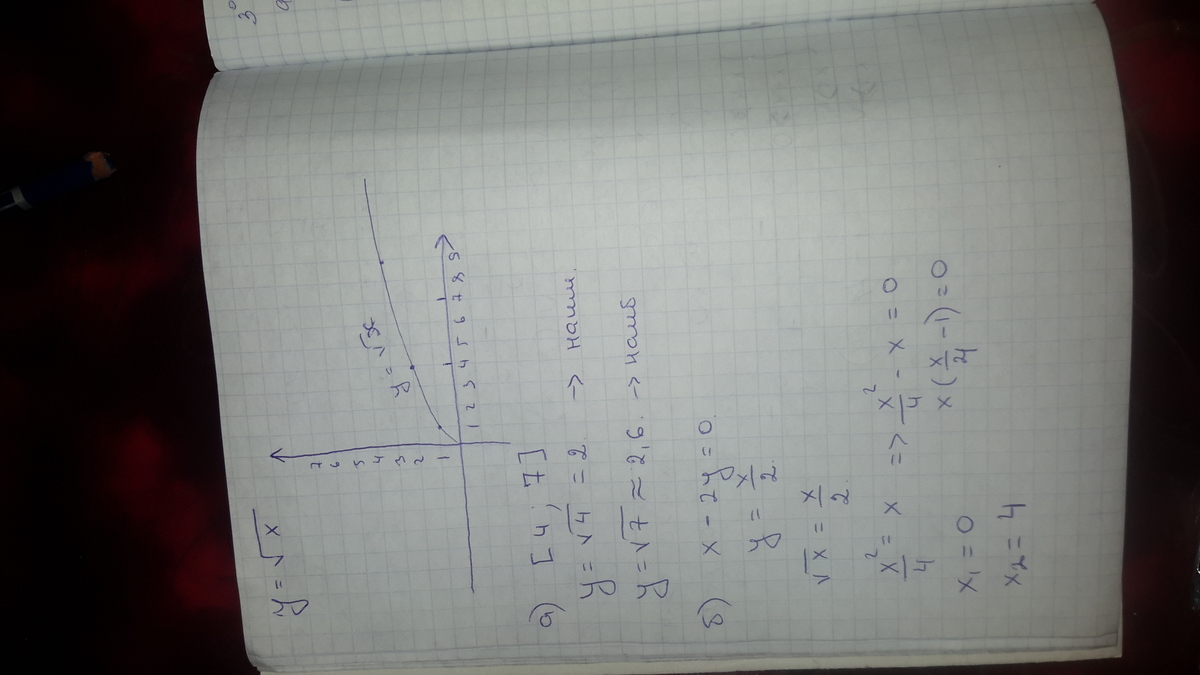 3
y = √x
7
6
5
4
3
2
1
y = √x
1 2 3 4 5 6 7 8 9
а) [4; 7]
y = √4 = 2 -> наим.
y = √7 ≈ 2,6. -> наиб
б) x - 2y = 0.
y = x/2.
√x = x/2.
x²/4 = x => x²/4 - x = 0
x(x/4 - 1) = 0
x₁ = 0
x₂ = 4